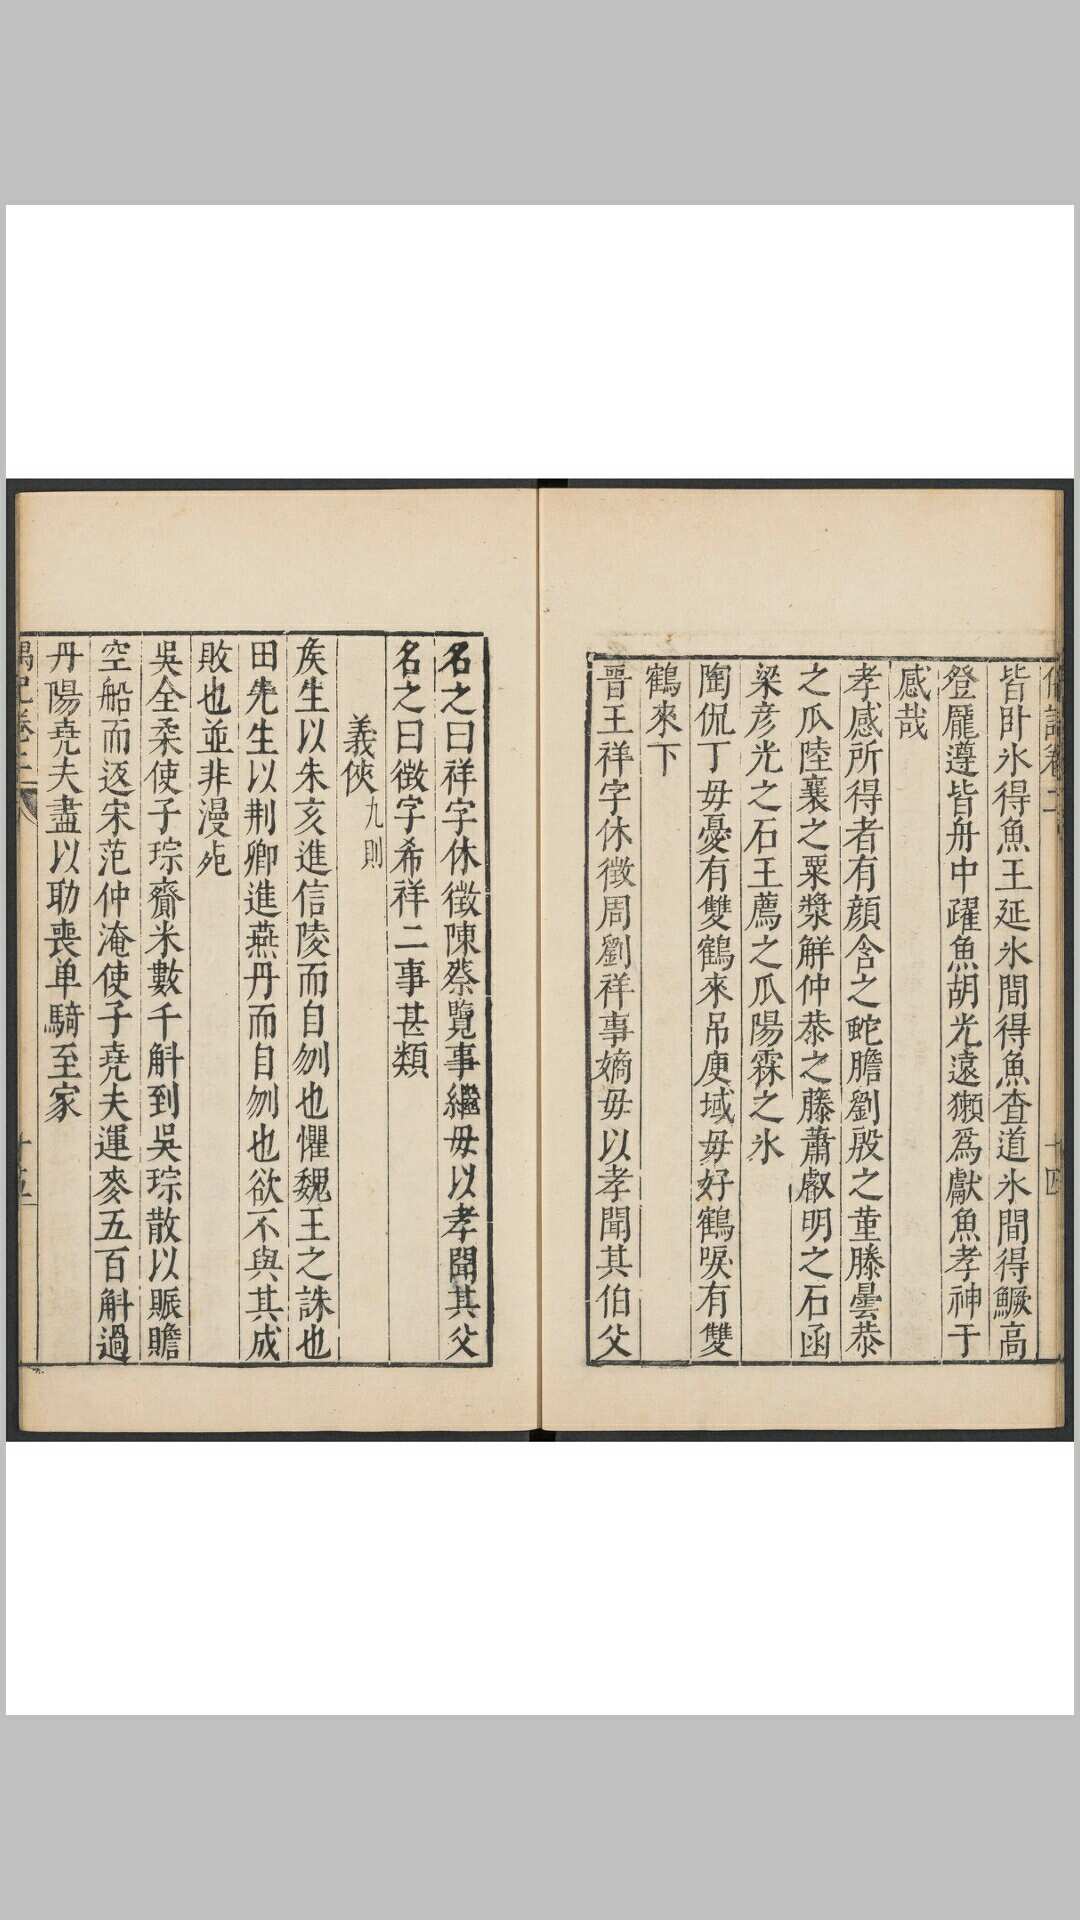 皆卧氷得魚王延氷間得魚查道氷間得鱖高
登龎遵皆舟中躍魚胡光遠獺爲獻魚孝神于
感哉
孝感所得者有顔含之蛇膽劉殷之菫滕曇恭
之瓜陸襄之粟漿解仲恭之藤蕭叡明之石函
梁彦光之石王薦之瓜陽霖之氷
陶侃丁母憂有雙鶴來吊庾域母好鶴唳有雙
鶴來下
晋王祥字休徴周劉祥事嫡母以孝聞其伯父
名之曰祥字休徴陳蔡覽事繼母以孝聞其父
名之曰徴字希祥二事甚類
義俠九則
矦生以朱亥進信陵而自刎也懼魏王之誅也
田先生以荆卿進燕丹而自刎也欲不與其成
敗也並非漫死
吳全柔使子琮齎米數千斛到吳琮散以賑贍
空船而返宋范仲淹使子堯夫運麥五百斛過
丹陽堯夫盡以助丧单騎至家